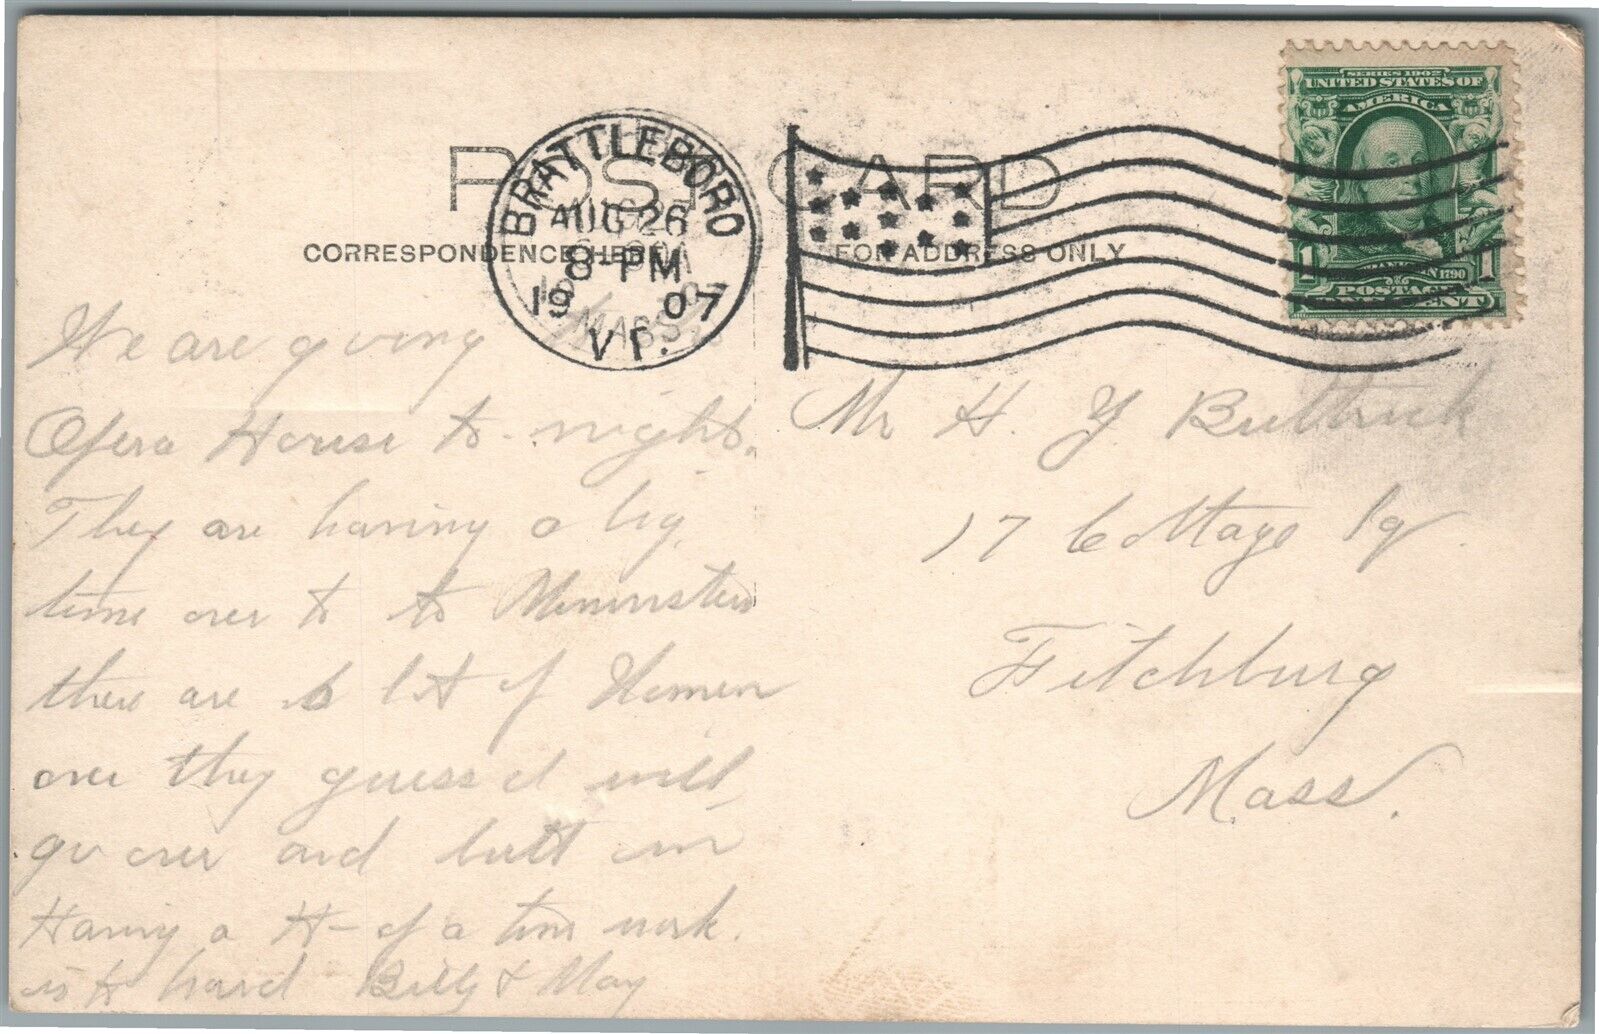 POST CARD
CORRESPONDENCE HERE
FOR ADDRESS ONLY
BRATTLEBORO
AUG 26
8-PM
1907
VT.
MASS
SERIES 1902
UNITED STATES OF
AMERICA
FRANKLIN 1790
1 1
POSTAGE
ONE CENT
We are going
Opera House to-night.
They are having a big
time over to to
there are a lot of Women
over they guess I will
go over and butt in
Having a H- of a time work
is to hard Billy & May
Mr H. Y. Buttrick
17 Cottage Sq
Fitchburg
Mass.